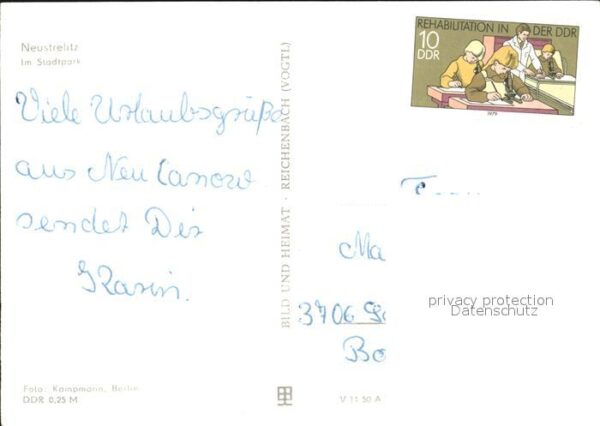 Neustrelitz
Im Stadtpark
REHABILITATION IN DER DDR
10
DDR
1979
Viele Urlaubsgrüße
aus Neu Canow
sendet Dir
Karin.
BILD UND HEIMAT · REICHENBACH (VOGTL)
Ma
3706
Bo
privacy protection
Datenschutz
Foto: Kampmann, Berlin
DDR 0,25 M
V 11 50 A